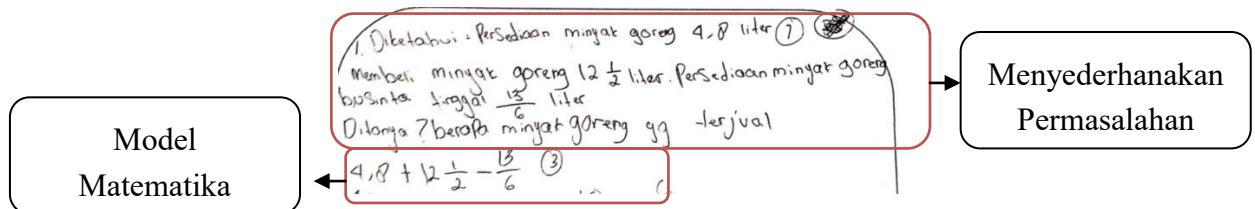 1. Diketahui : Persediaan minyak goreng 4,8 liter ①
Membeli minyak goreng 12 1/2 liter. Persediaan minyak goreng
businta tinggal 13/6 liter
Ditanya ? berapa minyak goreng yg terjual
4,8 + 12 1/2 - 13/6 ③
Menyederhanakan
Permasalahan
Model
Matematika